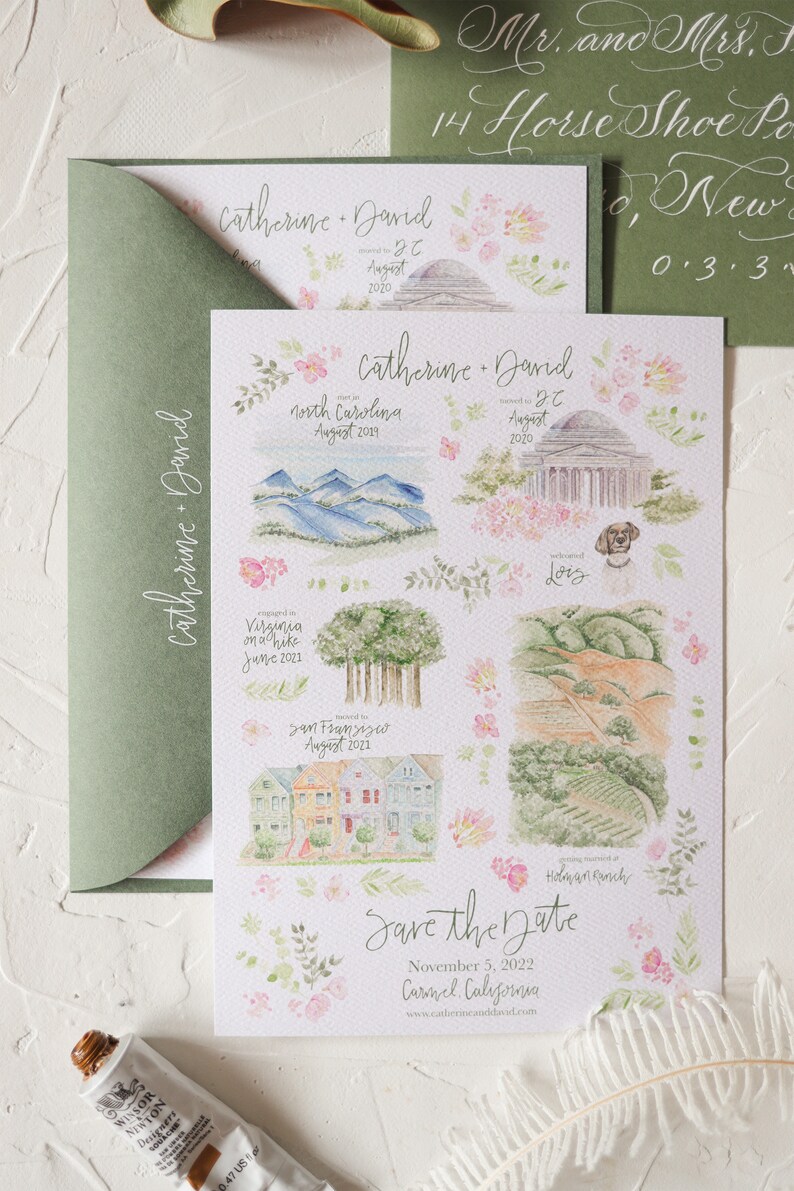 Mr. and Mrs.
14 Horse Shoe
New
0·3·3
Catherine + David
moved to DC
August
2020
Catherine + David
Catherine + David
met in
North Carolina
August 2019
moved to DC
August
2020
welcomed
Lois
engaged in
Virginia
on a hike
June 2021
moved to
San Fransisco
August 2021
getting married at
Holman Ranch
Save the Date
November 5, 2022
Carmel, California
www.catherineanddavid.com
WINSOR
& NEWTON
Designers
GOUACHE
RAW UMBER
0.47 US fl